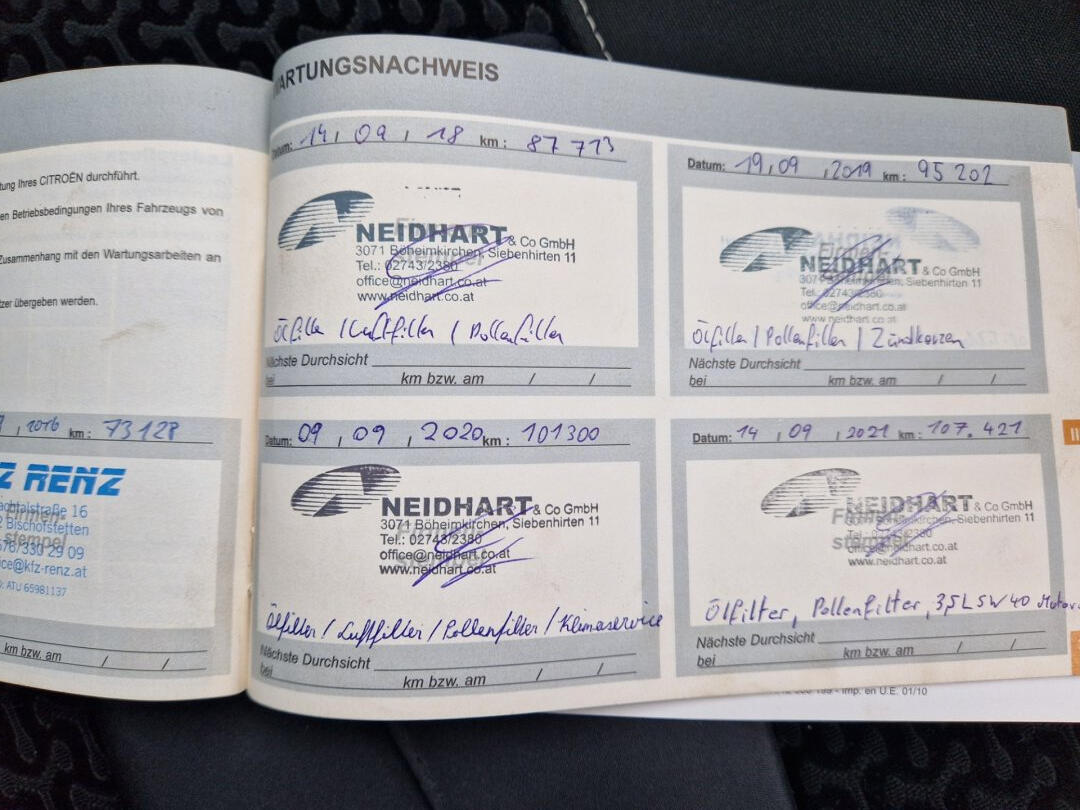 tung Ihres CITROËN durchführt.
en Betriebsbedingungen Ihres Fahrzeugs von
Zusammenhang mit den Wartungsarbeiten an
tzer übergeben werden.
, 2016 km : 73128
Z RENZ
achtalstraße 16
2 Bischofstetten
Firmen-
stempel
676/330 29 09
ice@kfz-renz.at
D: ATU 65981137
km bzw. am / /
ARTUNGSNACHWEIS
Datum: 14 , 09 , 18 km : 87 713
NEIDHART & Co GmbH
3071 Böheimkirchen, Siebenhirten 11
Tel.: 02743/2380
office@neidhart.co.at
www.neidhart.co.at
Ölfilter / Luftfilter / Pollenfilter
Nächste Durchsicht
bei km bzw. am / /
Datum: 19 , 09 , 2019 km : 95 202
NEIDHART & Co GmbH
3071 Böheimkirchen, Siebenhirten 11
Tel.: 02743/2380
office@neidhart.co.at
www.neidhart.co.at
Ölfilter / Pollenfilter / Zündkerzen
Nächste Durchsicht
bei km bzw. am / /
Datum: 09 , 09 , 2020 km : 101300
NEIDHART & Co GmbH
3071 Böheimkirchen, Siebenhirten 11
Tel.: 02743/2380
office@neidhart.co.at
www.neidhart.co.at
Ölfilter / Luftfilter / Pollenfilter / Klimaservice
Nächste Durchsicht
bei km bzw. am / /
Datum: 14 , 09 , 2021 km : 107.421
NEIDHART & Co GmbH
Firmen-
stempel
3071 Böheimkirchen, Siebenhirten 11
Tel.: 02743/2380
office@neidhart.co.at
www.neidhart.co.at
Ölfilter, Pollenfilter, 3,5L 5W40 Motor
Nächste Durchsicht
bei km bzw. am / /
- Imp. en U.E. 01/10